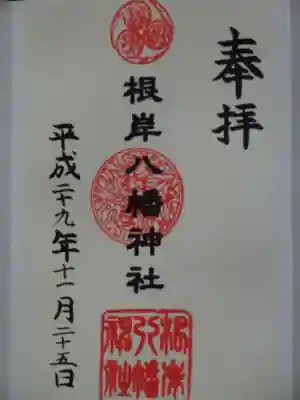 奉拝
根岸八幡神社
平成二十九年十一月二十五日
根岸
八幡
神社